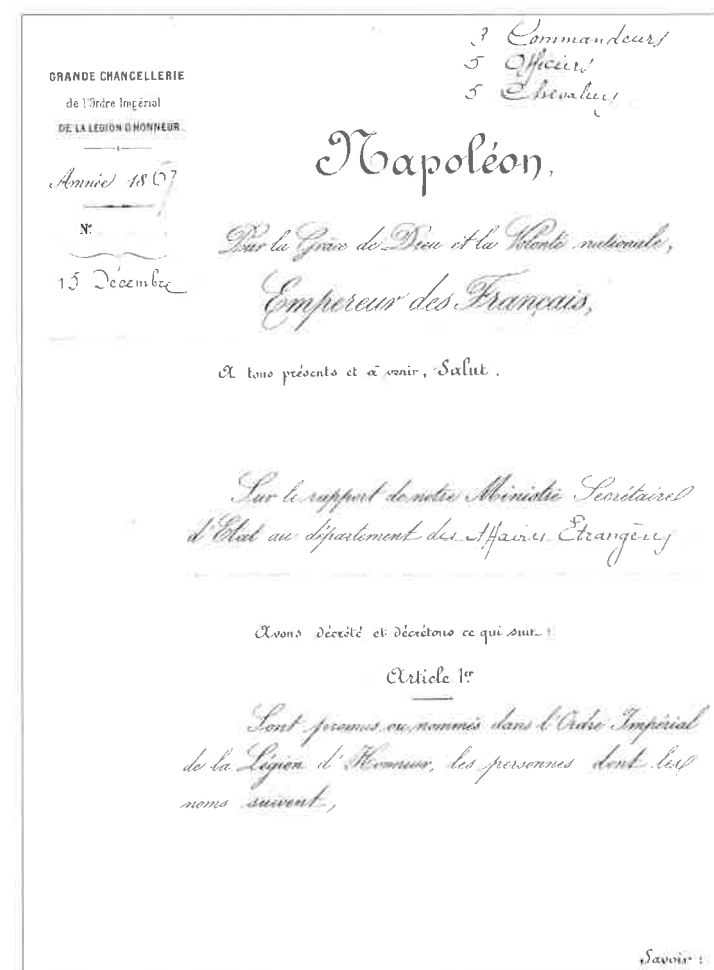 3 Commandeurs
5 Officiers
5 Chevaliers
GRANDE CHANCELLERIE
de l'Ordre Impérial
DE LA LÉGION D'HONNEUR.
Année 1867
N°
15 Décembre
Napoléon,
Par la Grâce de Dieu et la Volonté nationale,
Empereur des Français,
A tous présents et à venir, Salut.
Sur le rapport de notre Ministre Secrétaire
d'Etat au département des Affaires Etrangères
Avons décrété et décrétons ce qui suit :
Article 1er
Sont promus ou nommés dans l'Ordre Impérial
de la Légion d'Honneur, les personnes dont les
noms suivent,
Savoir :